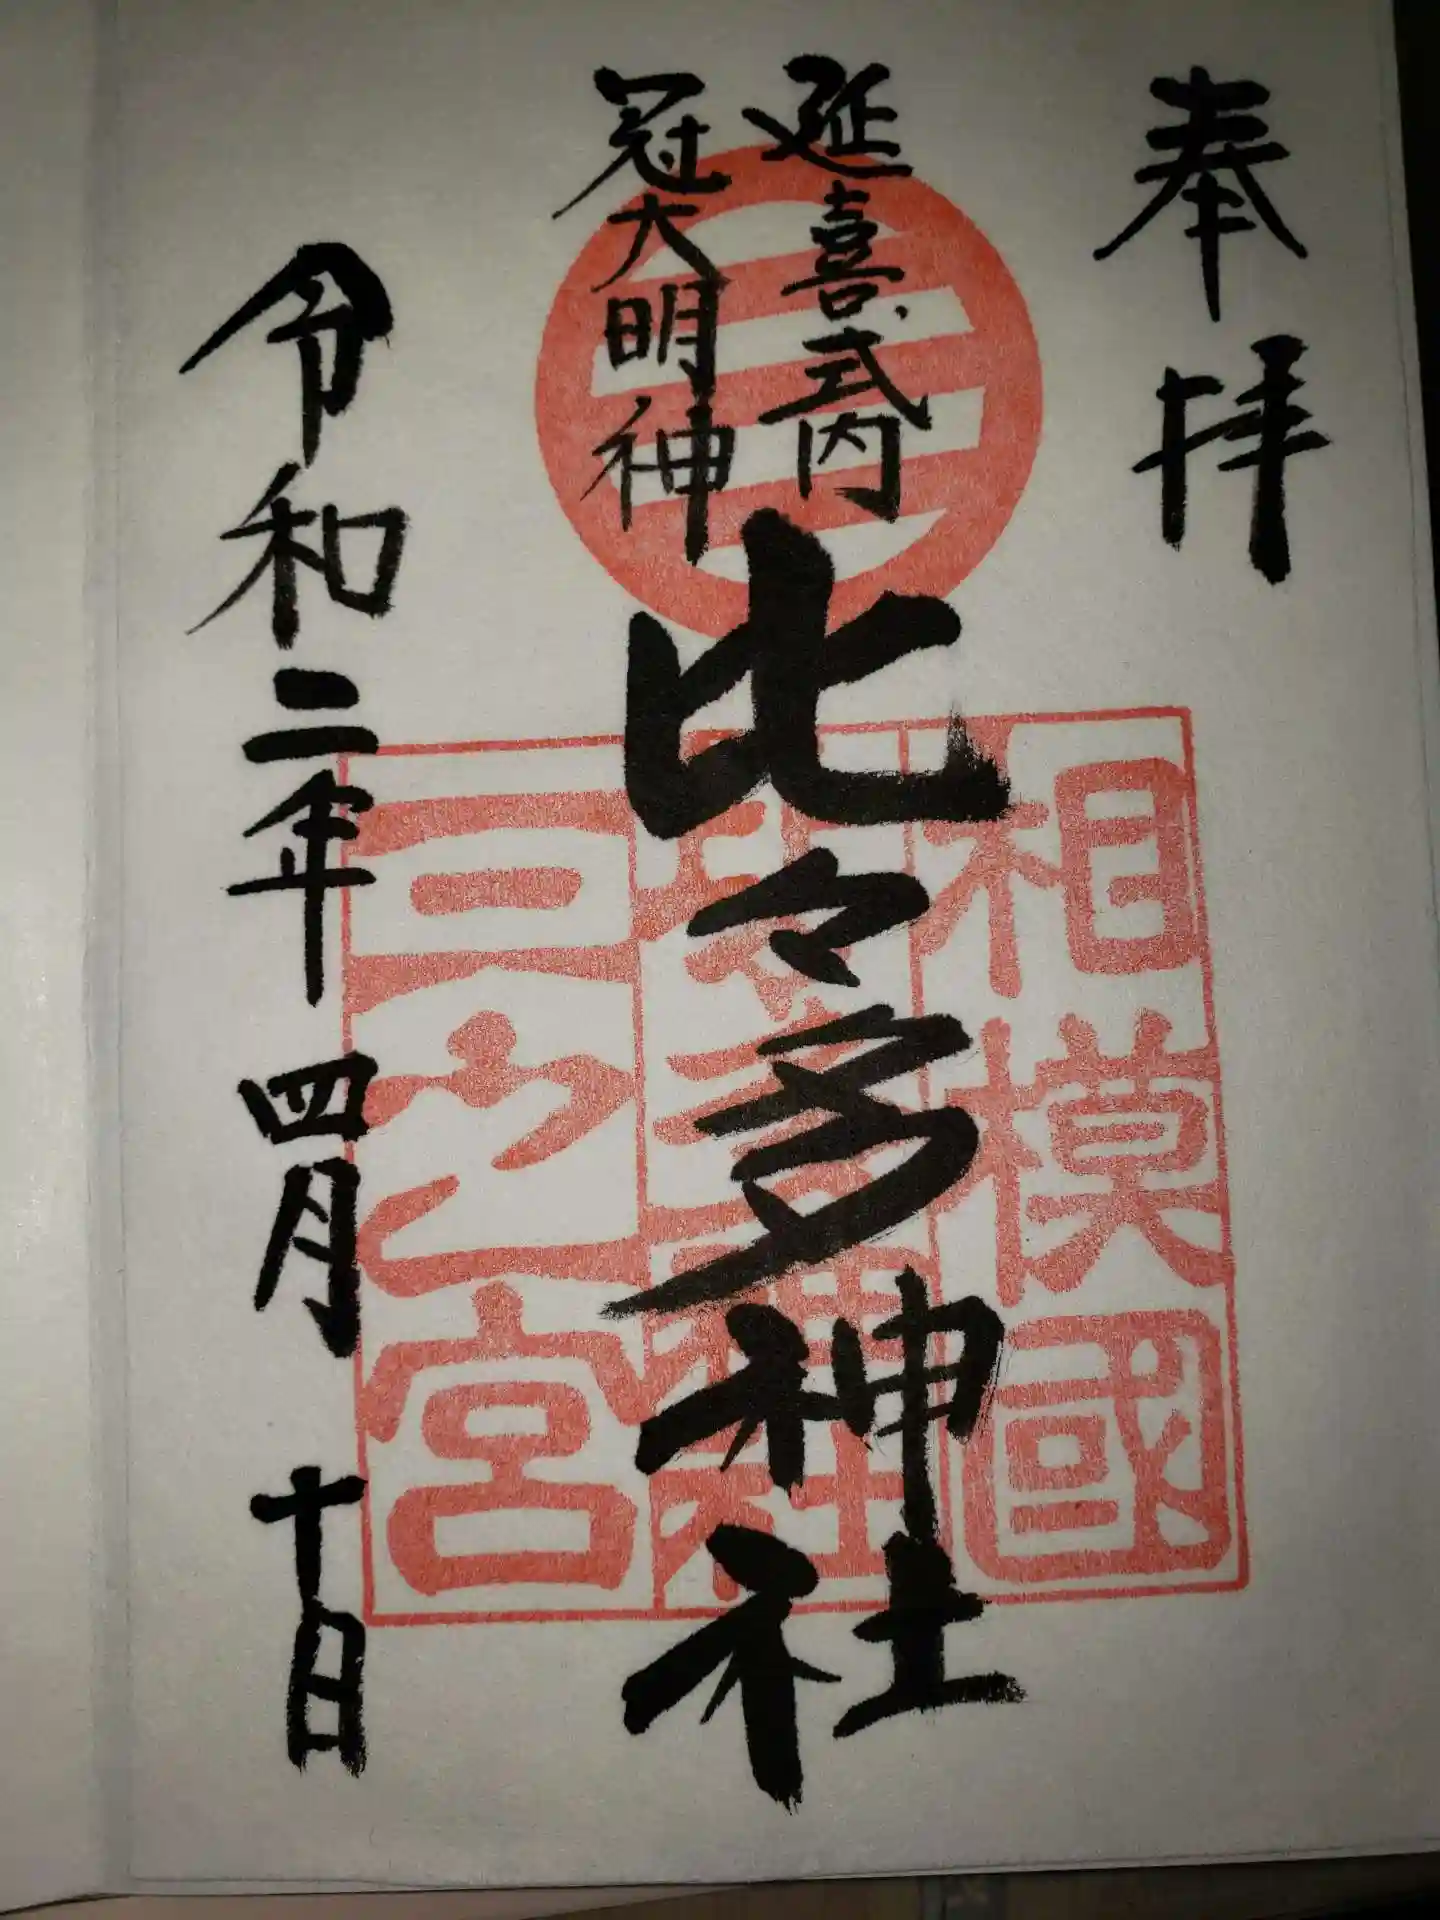 奉拝
延喜式内
冠大明神
比々多神社
令和二年 四月 十日
相模國
三之宮